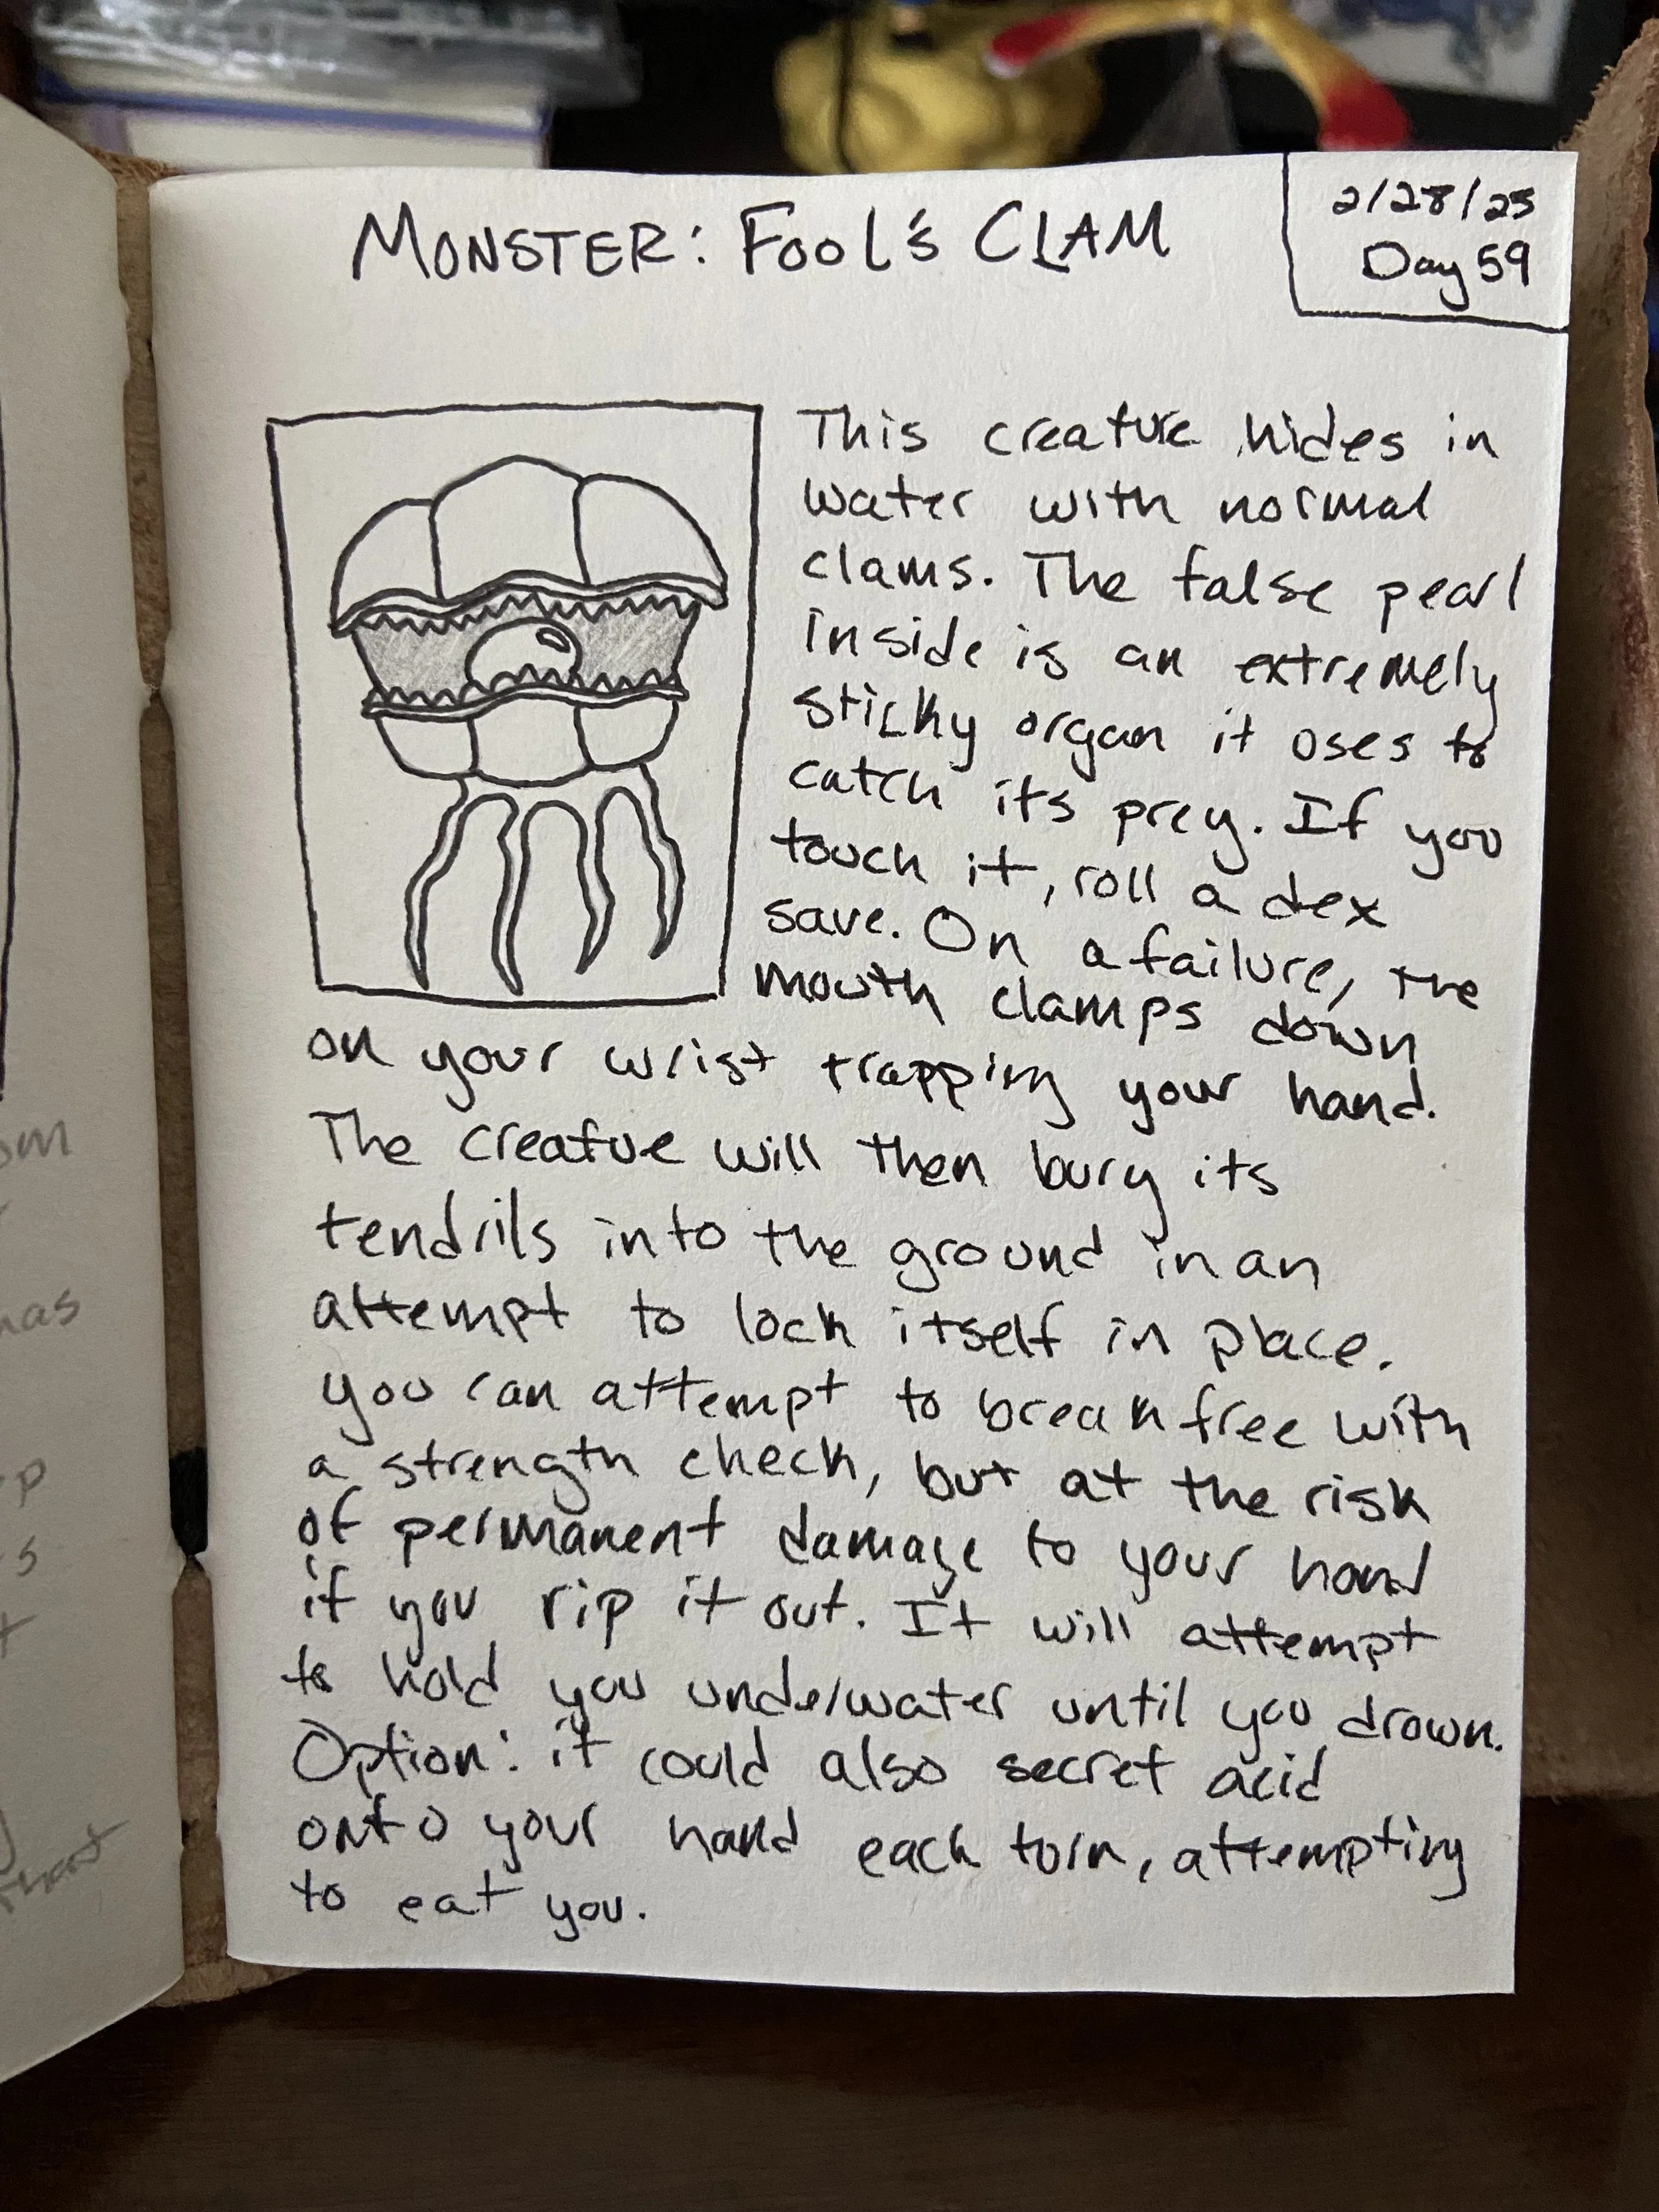 MONSTER: FOOL'S CLAM
2/28/25
Day 59
This creature hides in
water with normal
clams. The false pearl
inside is an extremely
sticky organ it uses to
catch its prey. If you
touch it, roll a dex
save. On a failure, the
mouth clamps down
on your wrist trapping your hand.
The creatue will then bury its
tendrils into the ground in an
attempt to lock itself in place.
you can attempt to break free with
a strength check, but at the risk
of permanent damage to your hand
if you rip it out. It will attempt
to hold you underwater until you drown.
Option: it could also secret acid
onto your hand each turn, attempting
to eat you.